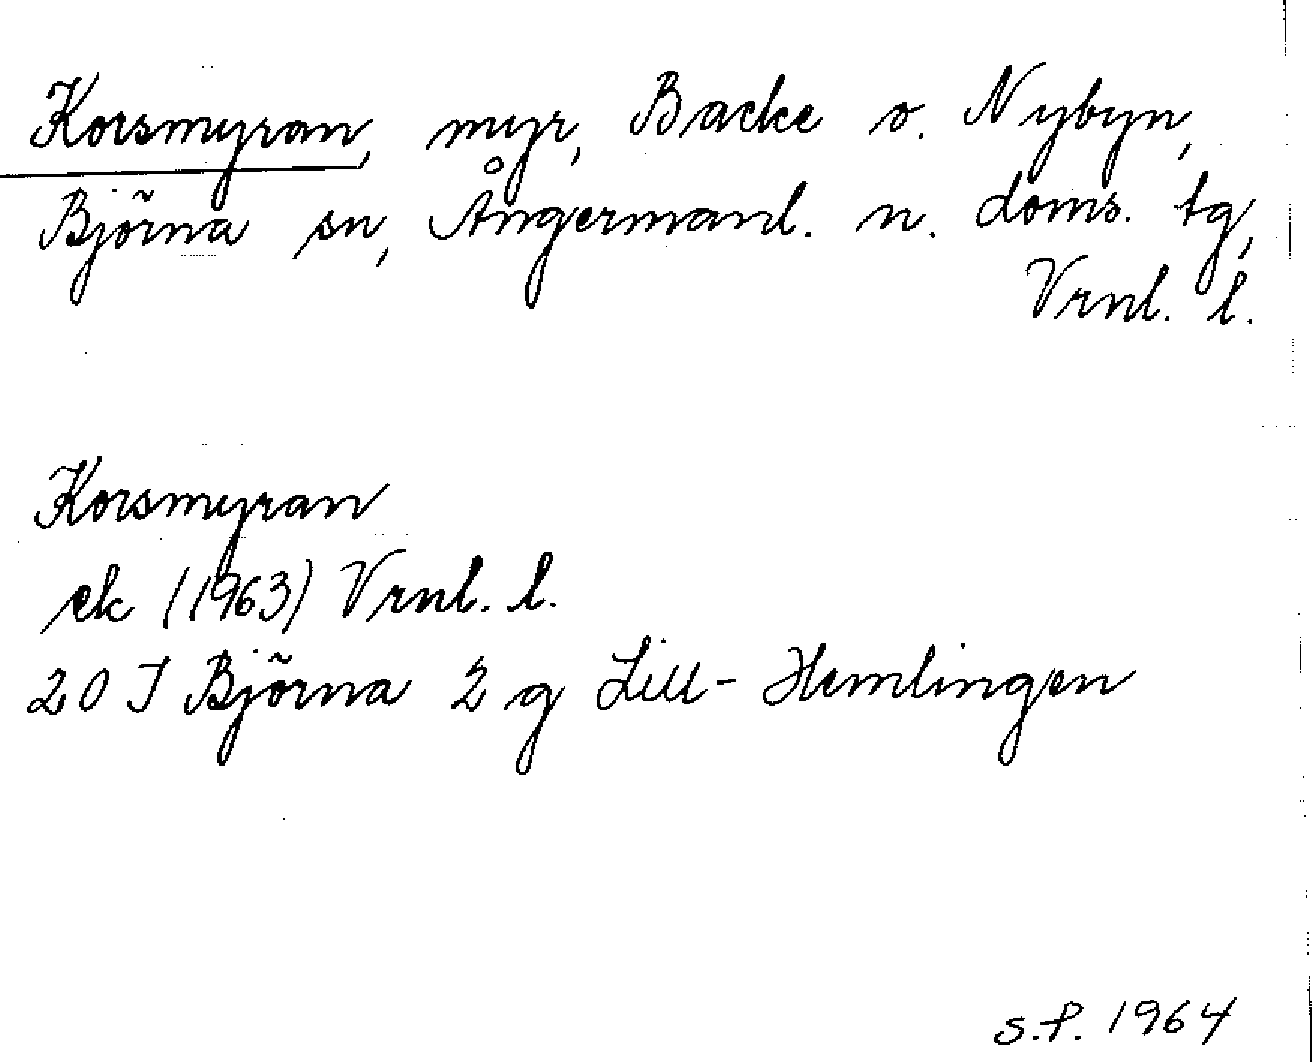 Korsmyran, myr, Backe o. Nybyn,
Björna sn, Ångermanl. n. doms. tg,
Vrnl. l.
Korsmyran
ek (1963) Vrnl. l.
20 I Björna 2 g Lill-Hemlingen
S.P. 1964